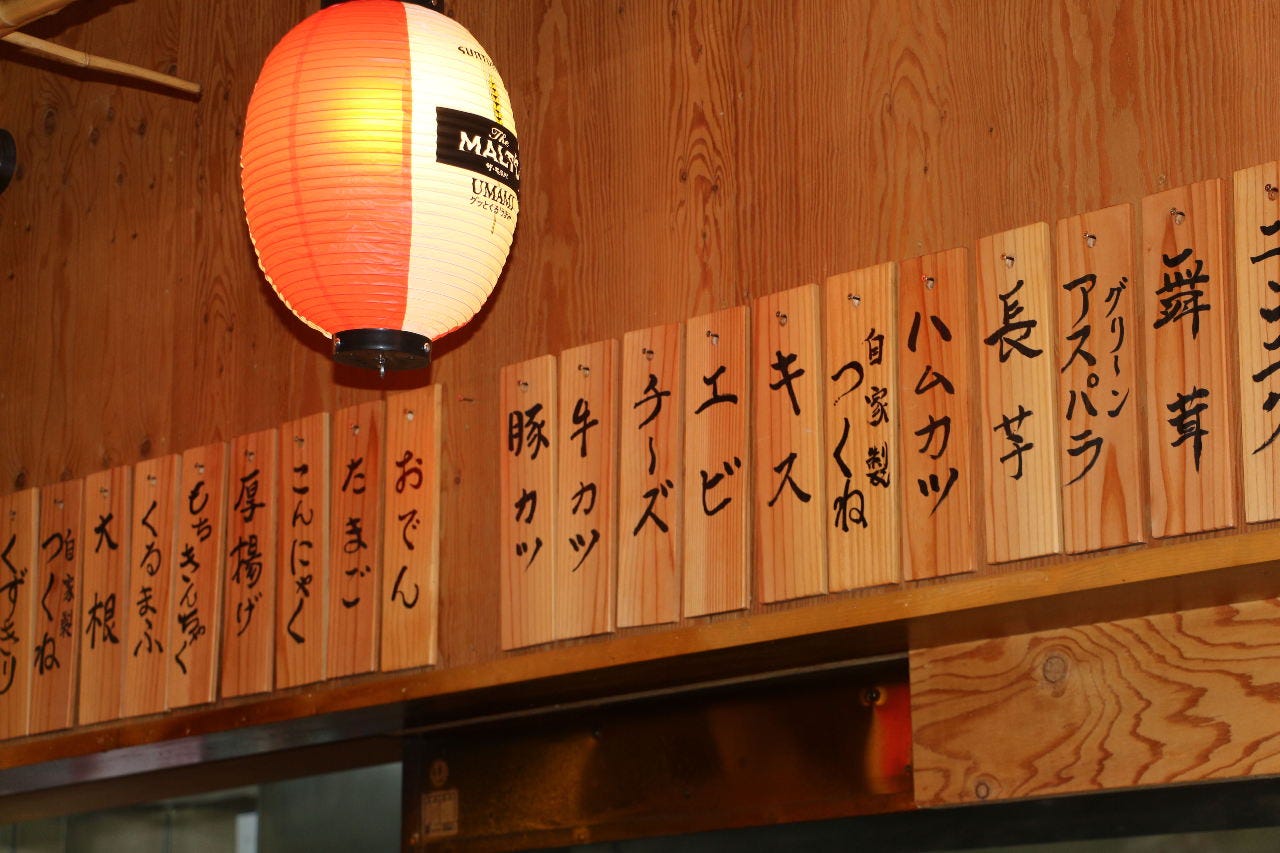 The
MALT'S
UMAMI
舞茸
グリーン
アスパラ
長芋
ハムカツ
自家製
つくね
キス
エビ
チーズ
牛カツ
豚カツ
おでん
たまご
こんにゃく
厚揚げ
もちきんちゃく
くるまふ
大根
自家製
つくね
くずきり